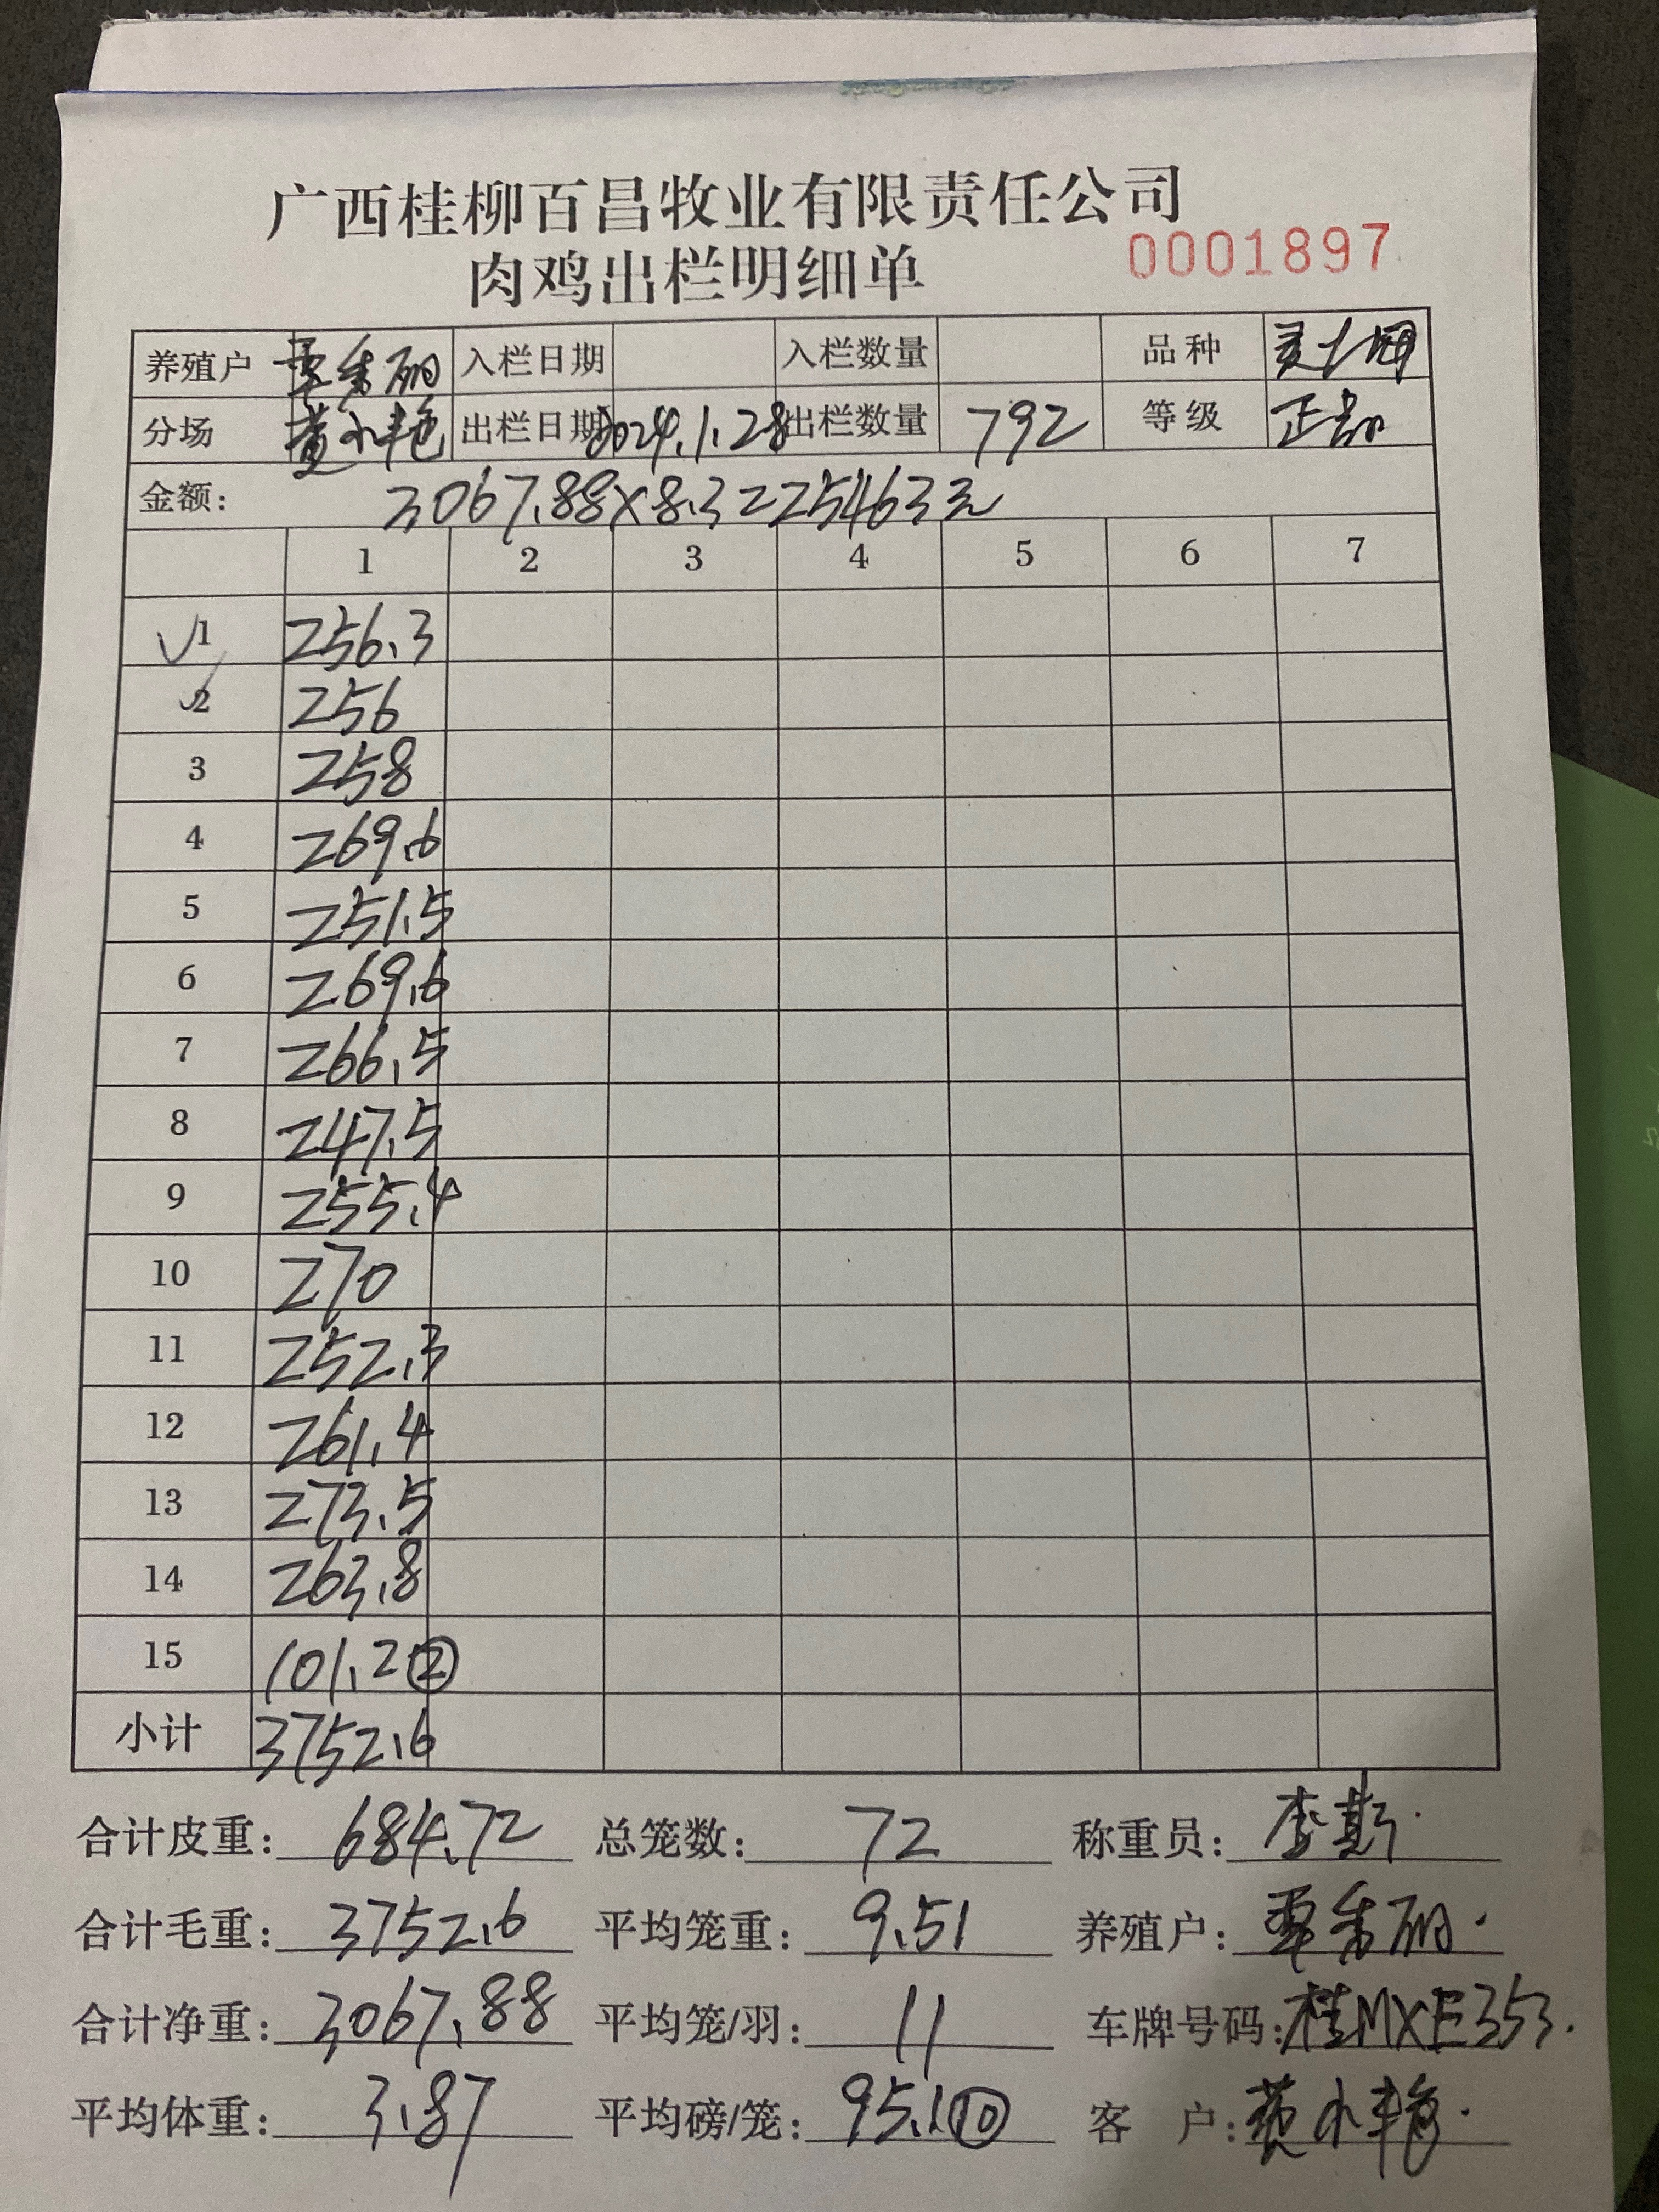 广西桂柳百昌牧业有限责任公司
肉鸡出栏明细单 0001897
养殖户 覃秀丽 入栏日期 入栏数量 品种
分场 黄小艳 出栏日期 2024.1.28 出栏数量 792 等级 正品
金额: 3067.88×8.3=25463元
1 2 3 4 5 6 7
√1 256.3
√2 256
3 258
4 269.6
5 251.5
6 269.6
7 266.5
8 247.5
9 255.4
10 270
11 252.3
12 261.4
13 273.5
14 263.8
15 101.2②
小计 3752.6
合计皮重: 684.72 总笼数: 72 称重员: 李斯
合计毛重: 3752.6 平均笼重: 9.51 养殖户: 覃秀丽
合计净重: 3067.88 平均笼/羽: 11 车牌号码: 桂MXE353
平均体重: 3.87 平均磅/笼: 95.1⑩ 客户: 黄小艳